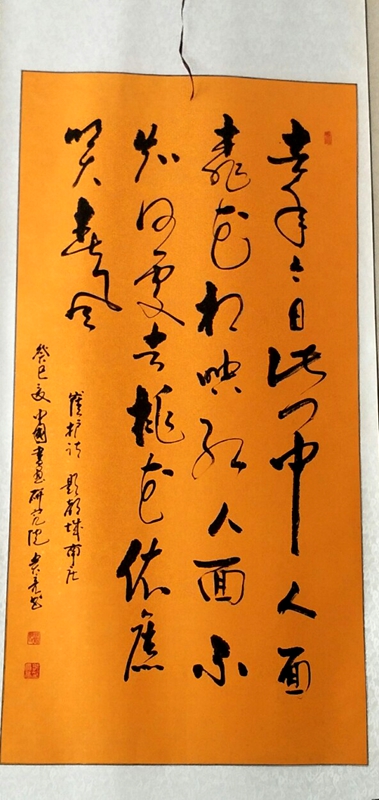 去年今日此门中人面
桃花相映红人面不
知何處去桃花依舊
笑春风
崔护诗 题都城南庄
癸巳夏 中國書画研究院